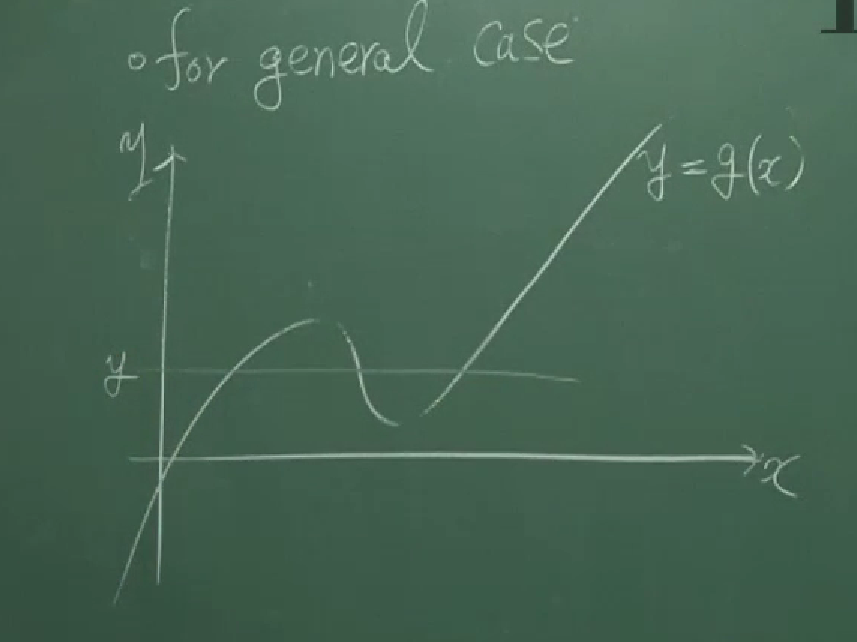 ∘ for general case
y
y = g(x)
y
x